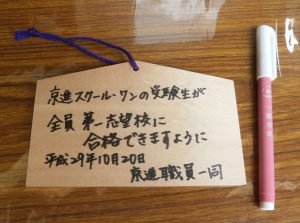 京進スクール・ワンの受験生が
全員 第一志望校に
合格できますように
平成29年10月20日
京進職員一同